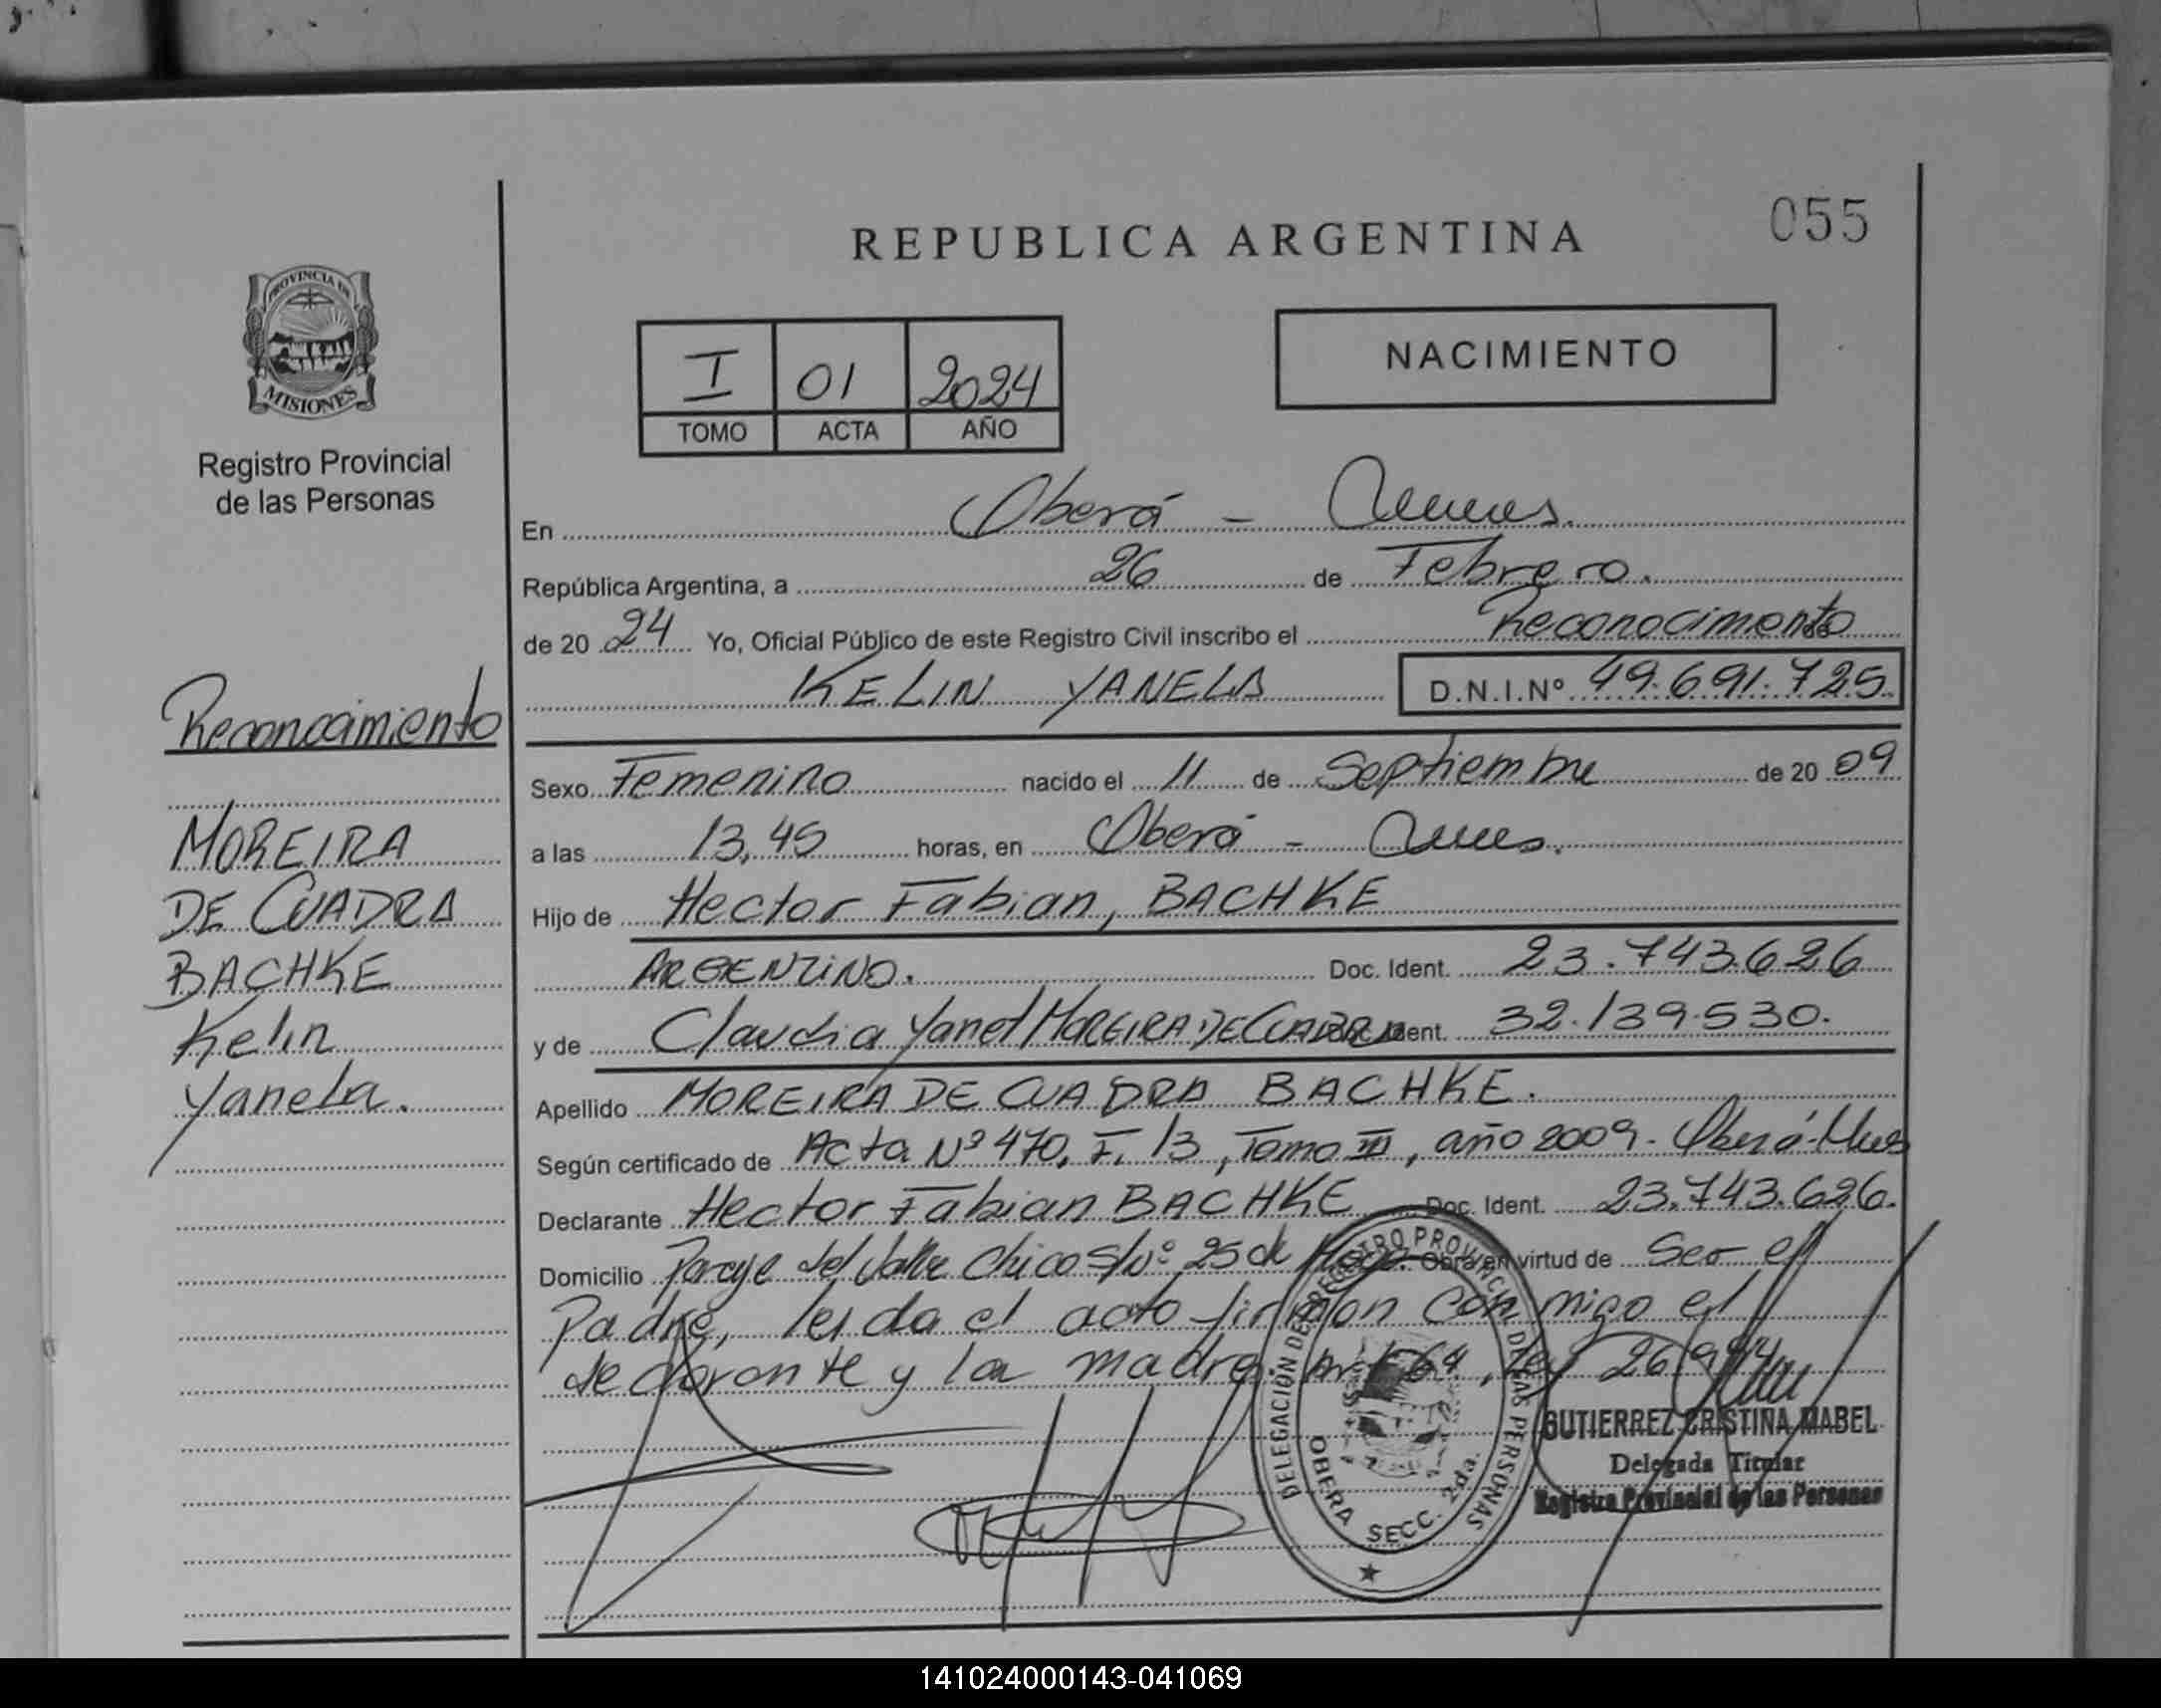 055
REPUBLICA ARGENTINA
PROVINCIA DE
MISIONES
Registro Provincial
de las Personas
I 01 2024
TOMO ACTA AÑO
NACIMIENTO
En Oberá -
República Argentina, a 26 de Febrero.
de 20 24 Yo, Oficial Público de este Registro Civil inscribo el Reconocimento de
KELIN YANELA D.N.I.Nº 49.691.725
Reconocimiento
MOREIRA
DE CUADRA
BACHKE
Kelin
Yanela.
Sexo Femenino nacido el 11 de Septiembre de 20 09
a las 13,45 horas, en Oberá -
Hijo de Hector Fabian, BACHKE
ARGENTINO. Doc. Ident. 23.743.626
y de Claudia Yanet MOREIRA DE CUADRA Doc. Ident. 32.139.530.
Apellido MOREIRA DE CUADRA BACHKE.
Según certificado de Acta Nº 470, F. 13, Tomo III, año 2009 - Oberá-
Declarante Hector Fabian BACHKE Doc. Ident. 23.743.626.
Domicilio Paraje del Valle Chico S/Nº 25 de Mayo. Obra en virtud de Ser el
Padre, leida el acta firman con migo el
declarante y la madre. Art 64, Ley 26994
DELEGACIÓN DE REGISTRO PROVINCIAL DE LAS PERSONAS
OBERA SECC. 2da.
GUTIERREZ CRISTINA MABEL
Delegada Titular
Registro Provincial de las Personas
141024000143-041069